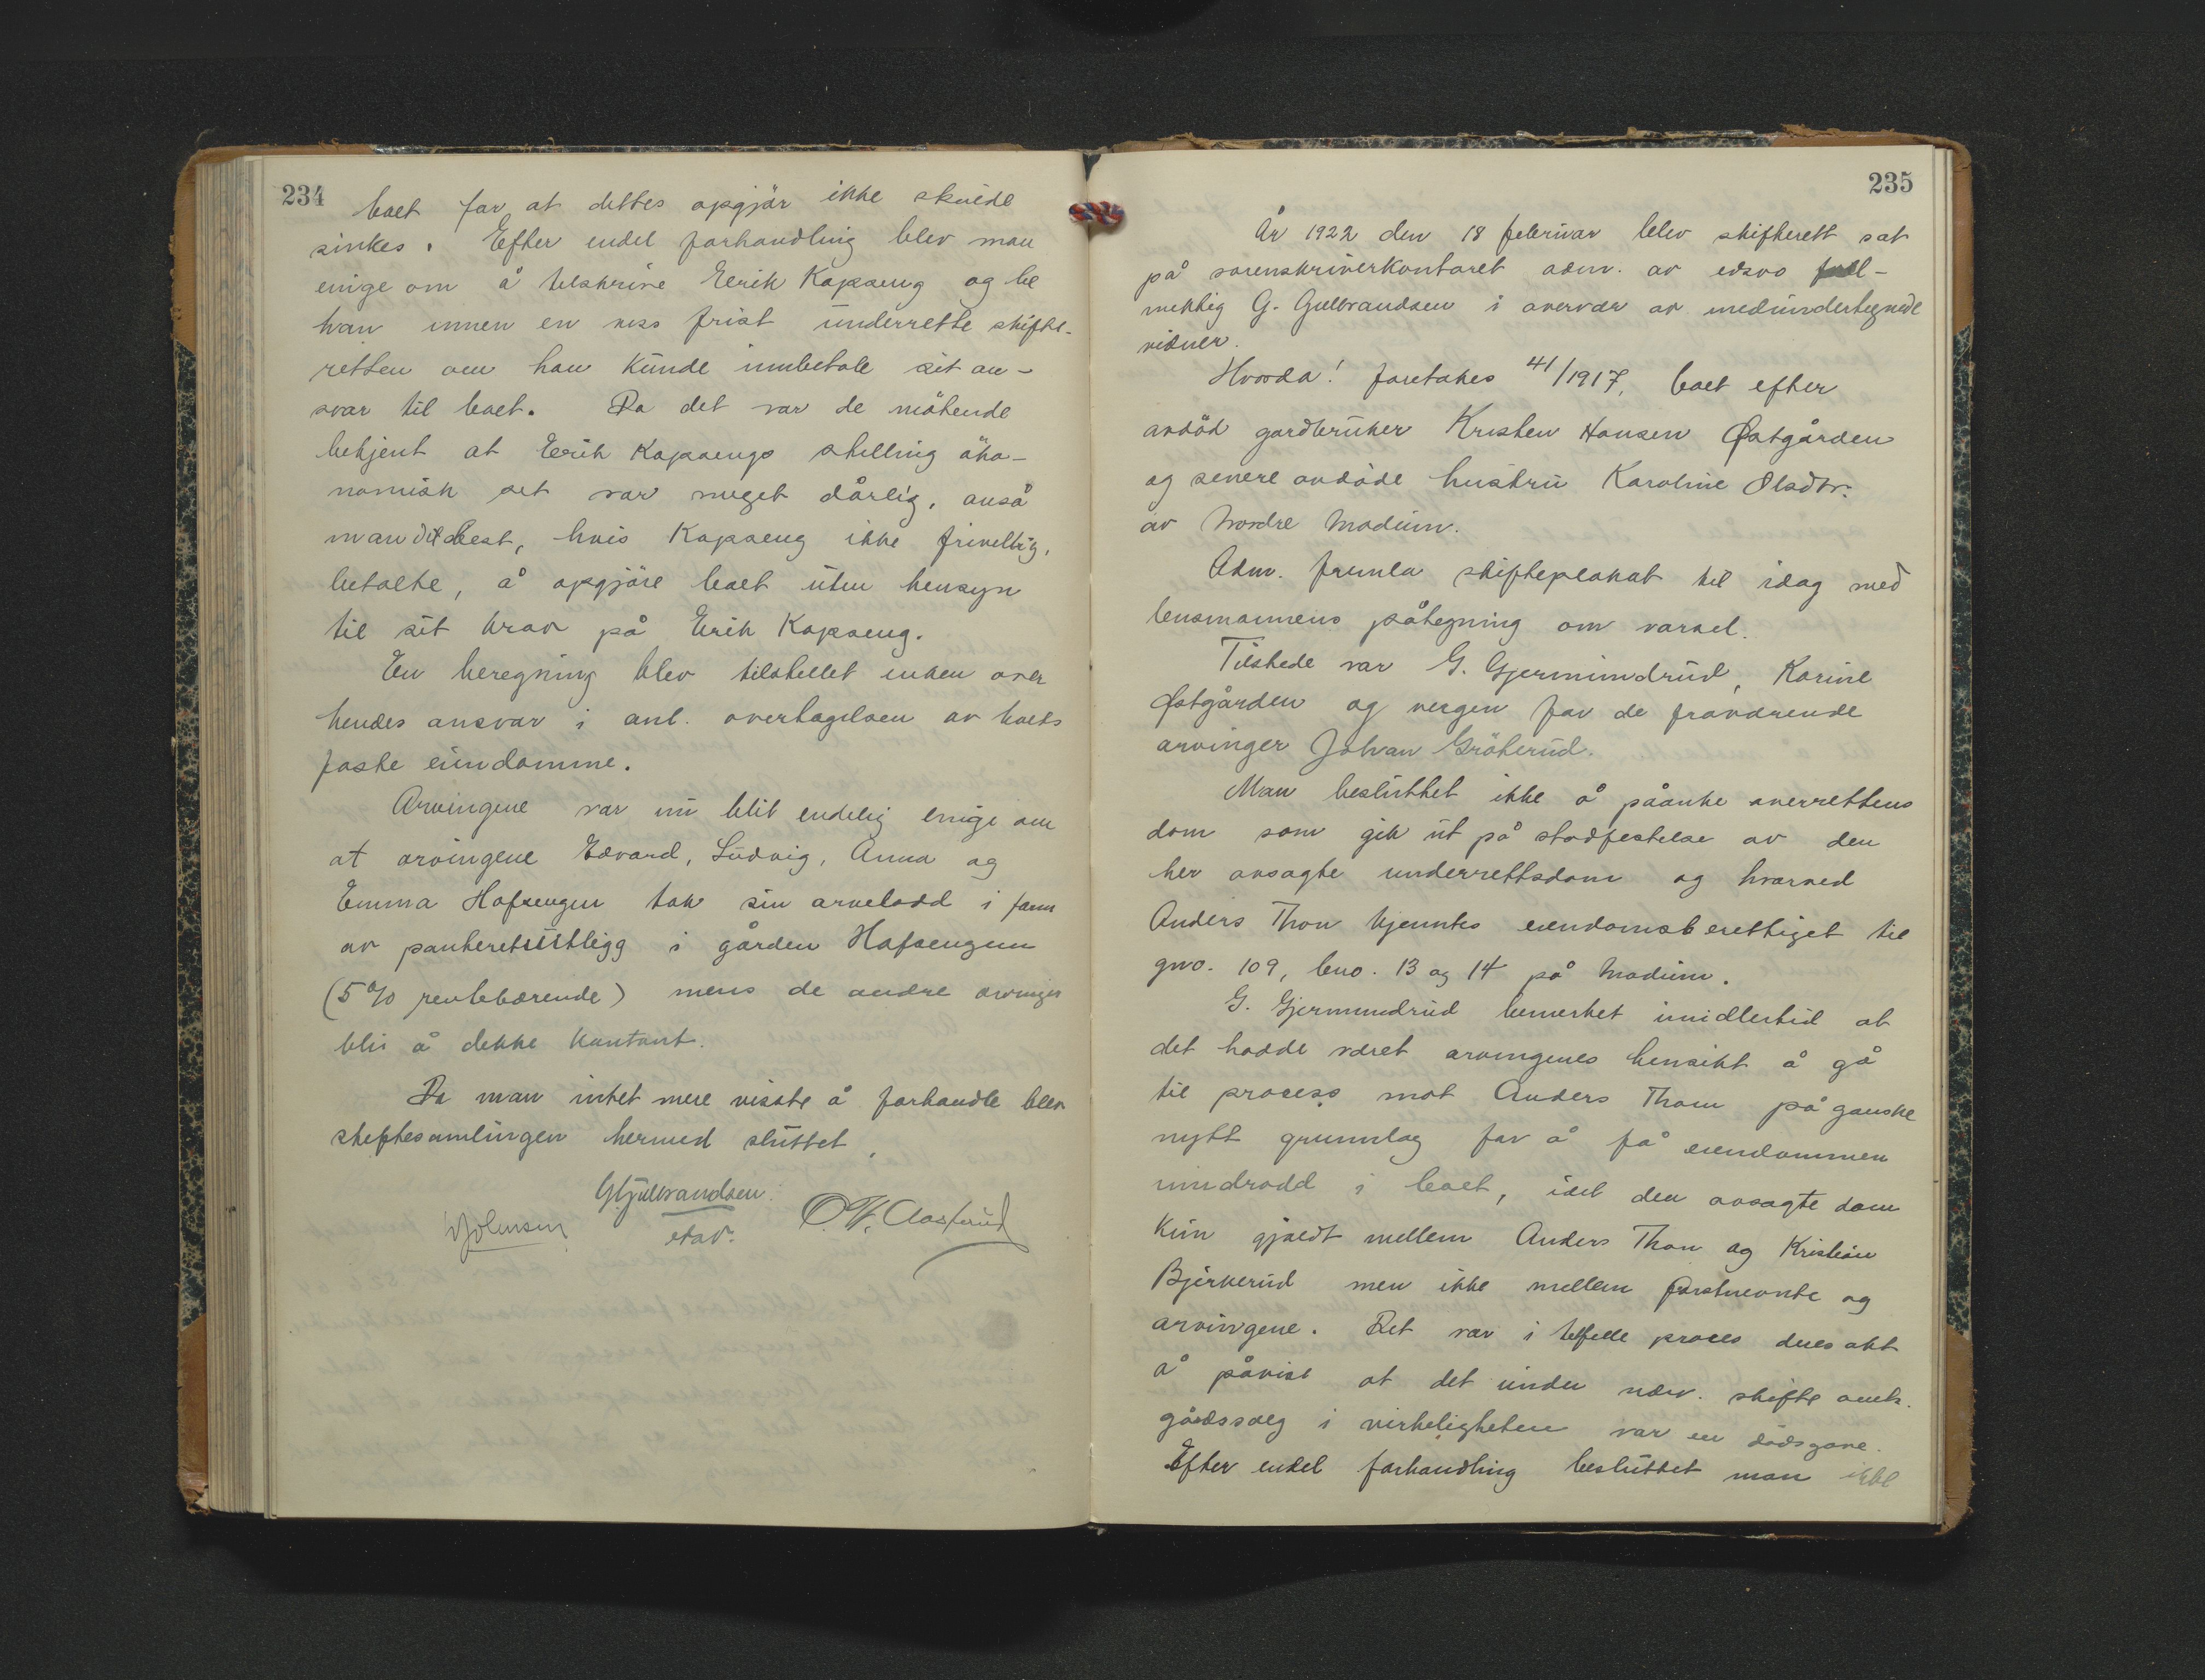 234
boet for at dettes opgjör ikke skulde
sinkes. Efter endel forhandling blev man
enige om å tilskrive Erik Kopseng og be
han innen en viss frist underrette skifte-
retten om han kunde innbetale sit an-
svar til boet. Da det var de mötende
bekjent at Erik Kopsengs stilling öko-
nomisk set var meget dårlig, anså
man det best, hvis Kopseng ikke frivellig,
betalte, å opgjöre boet uten hensyn
til sit krav på Erik Kopseng.
En beregning blev tilstellet enken over
hendes ansvar i anl. overtagelsen av boets
faste eiendomme.
Arvingene var nu blit endelig enige om
at arvingene Edvard, Ludvig, Anna og
Emma Hofsengen tok sin arvelodd i form
av panteretsutligg i gården Hofsengen
(5% rentebærende) mens de andre arvinger
blir å dekke kontant.
Da man intet mere visste å forhandle blev
skiftesamlingen hermed sluttet.
G Gulbrandsen
e.fav.
Johnsen
O. H. Aasterud
235
År 1922 den 18 februar blev skifterett sat
på sorenskriverkontoret adm. av edsvo full-
mektig G. Gulbrandsen i overvær av medundertegnede
vidner.
Hvorda! foretokes 41/1917, boet efter
avdöd gardbruker Kristen Hansen Østgården
og senere avdöde hustru Karoline Olsdtr.
av Nordre Modum.
Adm. fremla skifteplakat til idag med
lensmannens påtegning om varsel.
Tilstede var G. Gjermundrud, Karine
Østgården og vergen for de fraværende
arvinger Johan Gröterud.
Man besluttet ikke å påanke overrettens
dom som gik ut på stadfestelse av den
her avsagte underrettsdom og hvorved
Anders Thon kjenntes eiendomsberettiget til
gno. 109, bno. 13 og 14 på Modum.
G. Gjermundrud bemerket imidlertid at
det hadde været arvingenes hensikt å gå
til prosess mot Anders Thon på ganske
nytt grunnlag for å få eiendommen
inndradd i boet, idet den avsagte dom
kun gjaldt mellem Anders Thon og Kristian
Bjerkerud men ikke mellem förstnevnte og
arvingene. Det var i tilfelle proses deres akt
å påvise at det under nærv. skifte omh.
gårdssalg i virkeligheten var en dödsgave.
Efter endel forhandling besluttet man ikke